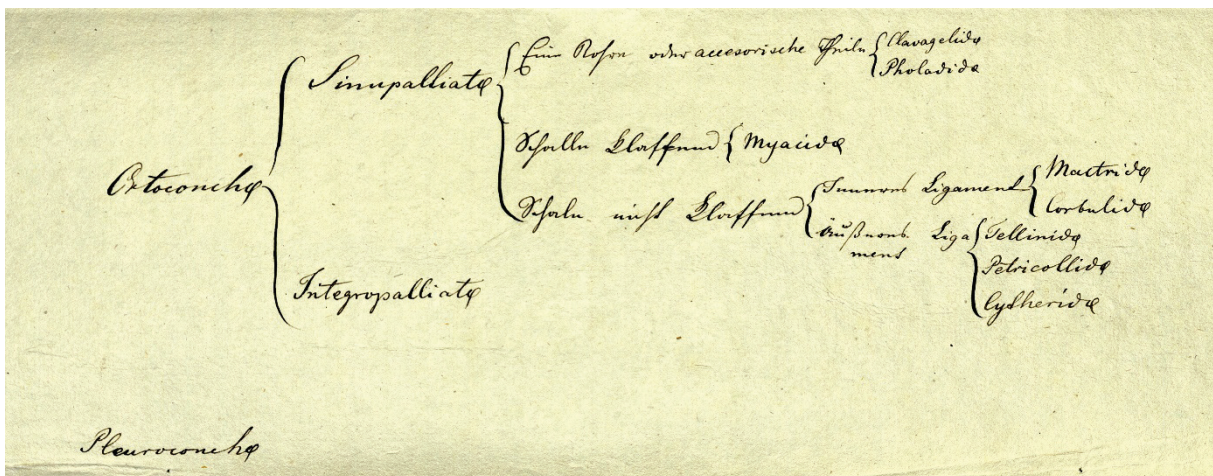 Sinupalliatæ
Eine Rohre oder accesorische Theile
Clavagelidæ
Pholadidæ
Schalle klaffend
Myacidæ
Ortoconchæ
Schale nicht klaffend
Inneres Ligament
Mactridæ
Corbulidæ
Äußeres Liga
ment
Tellinidæ
Petricollidæ
Cytheridæ
Integropalliatæ
Pleuroconchæ